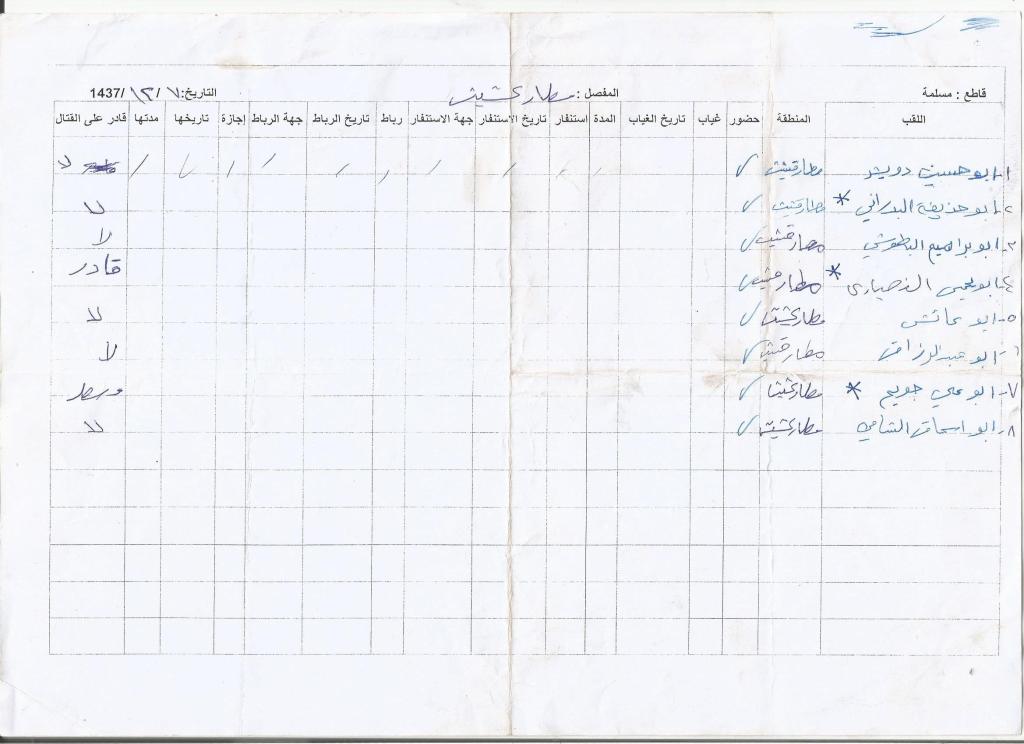 قاطع : مسلمة المفصل : مطار كشيش التاريخ: ٧ / ١٢ / 1437
اللقب المنطقة حضور غياب تاريخ الغياب المدة استنفار تاريخ الاستنفار جهة الاستنفار رباط تاريخ الرباط جهة الرباط إجازة تاريخها مدتها قادر على القتال
١- ابو حسين مطار ✓ / / / / / / / / / / لا
٢- ابو حذيفة البدراني * مطار ✓ لا
٣- ابو براهيم مطار ✓ لا
٤- ابو يحيى * مطار ✓ قادر
٥- ابو عائش مطار ✓ لا
٦- ابو عبد الرزاق مطار ✓ لا
٧- ابو علي جويم * مطار ✓ وسط
٨- ابو اسحاق الشامي مطار ✓ لا